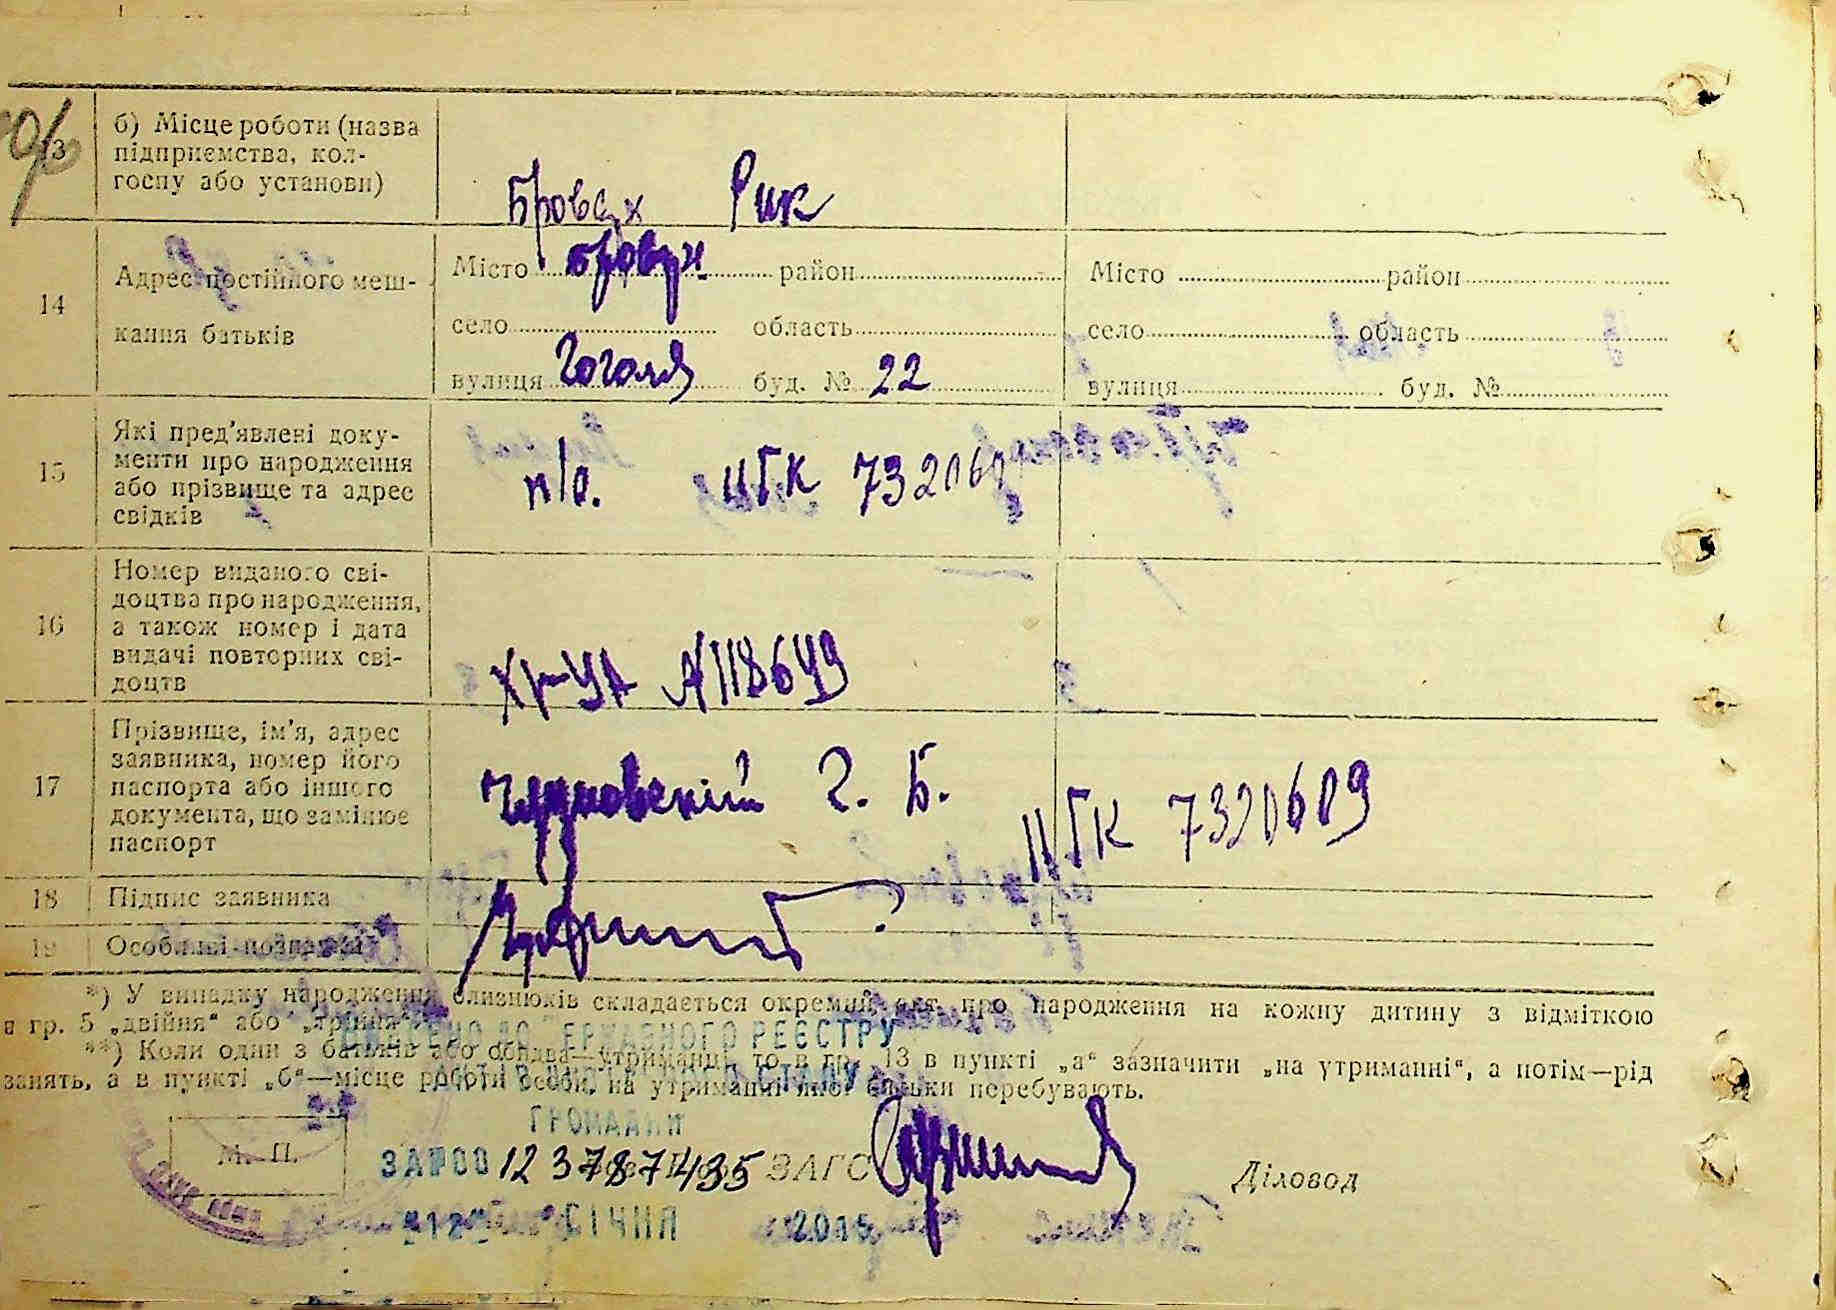 13
б) Місце роботи (назва
підприємства, кол-
госпу або установи)
Рик
14
Адрес постійного меш-
кання батьків
Місто район
село область
вулиця Гоголя буд. № 22
Місто район
село область
вулиця буд. №
15
Які пред'явлені доку-
менти про народження
або прізвище та адрес
свідків
п/о. ЦГК
16
Номер виданого сві-
доцтва про народження,
а також номер і дата
видачі повторних сві-
доцтв
118649
17
Прізвище, ім'я, адрес
заявника, номер його
паспорта або іншого
документа, що замінює
паспорт
Чудновській Г. Б.
ЦГК 7320609
18
Підпис заявника
19
Особливі позначки
*) У випадку народження близнюків складається окремий акт про народження на кожну дитину з відміткою
в гр. 5 „двійня“ або „трійня“.
**) Коли один з батьків або обидва—утриманці, то в гр. 13 в пункті „а“ зазначити „на утриманні“, а потім—рід
занять, а в пункті „б“—місце роботи особи, на утриманні якої батьки перебувають.
ДЕРЖАВНОГО РЕЄСТРУ
ГРОМАДЯН
М. П.
ЗАПИС 12 3787435 ЗАГС
Діловод
СІЧНЯ 2015